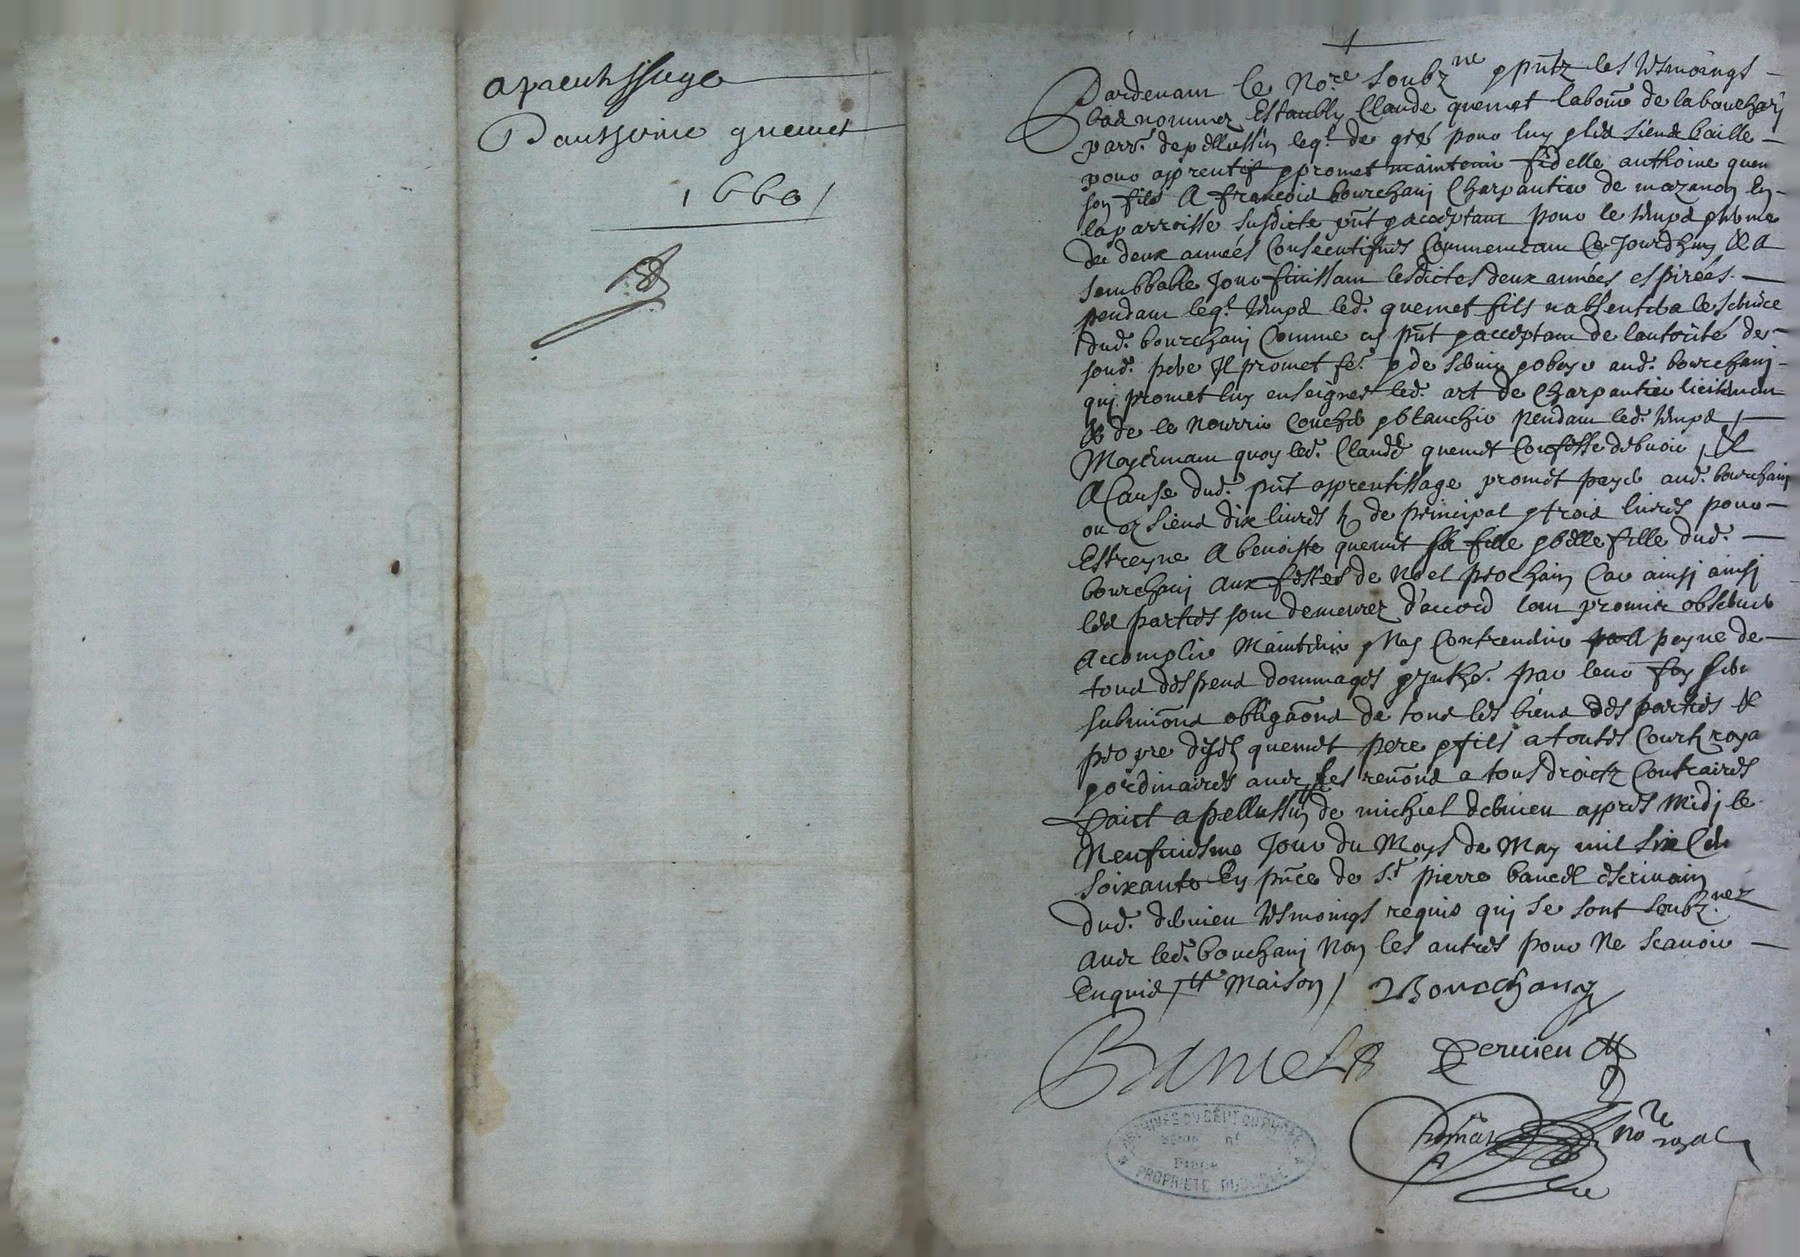 aprentissage
Danthoine quemet
1660
Pardevant le No.re soubz.ne & pñtz les tesmoings
bas nommez Estably Claude quemet labour de labouchary
parr.e de pellussin leq.l de gré pour luy & les siens baille
pour aprentif & promet maintenir fidelle anthoine quem
son fils A françois bourchanj Charpantier de mazanon En
la parroisse susdicte pñt & acceptant pour le temps & terme
de deux années Consecutifves Commencant Ce Jourdhuy & A
semblable Jour finissant lesdictes deux années espirées
pendant leq.l temps led. quemet fils nabsentera le service
dud. bourchanj Comme cy pñt & acceptant de lautorité de
sond. pere Il promet & de servir & obeyr aud. bourchanj
quj promet luy enseigner led. art de Charpantier licitemen
& de le nourrir Coucher & blanchir pendant led. temps
Moyennant quoy led. Claude quemet Confesse debvoir
A Cause dud. pñt aprentissage promet payer aud. bourchanj
ou es siens dix livres tz de principal & trois livres pour
Estreyne A benoiste quemet sa fille & belle fille dud.
bourchanj aux festes de Noel prochain Car ainsj
les parties sont demeurez d'accord lont promis observer
Accomplir Maintenir & Ny Contrevenir A peyne de
tous despens dommages & Inthz. par leur foy ser
submiõns obligaõns de tous les biens des parties &
propre desd. quemet pere & fils a toutes Courtz roya
& ordinaires avec les renõns a tous droictz Contraires
Faict a pellussin de michiel dervieu appres Midj le
Neufviesme Jour du Moys de May mil six Cen
soixante En pñce de s.r pierre bancel escrivain
dud. dervieu tesmoings requis quj se sont soubz.nez
avec led. bourchanj Non les autres pour Ne scavoir
Enquis Maison Bourchany
Bancel Dervieu
No.re royal
ARCHIVES DU DÉPT DU RHÔNE
SÉRIE N°
PIÈCE
PROPRIÉTÉ PUBLIQUE